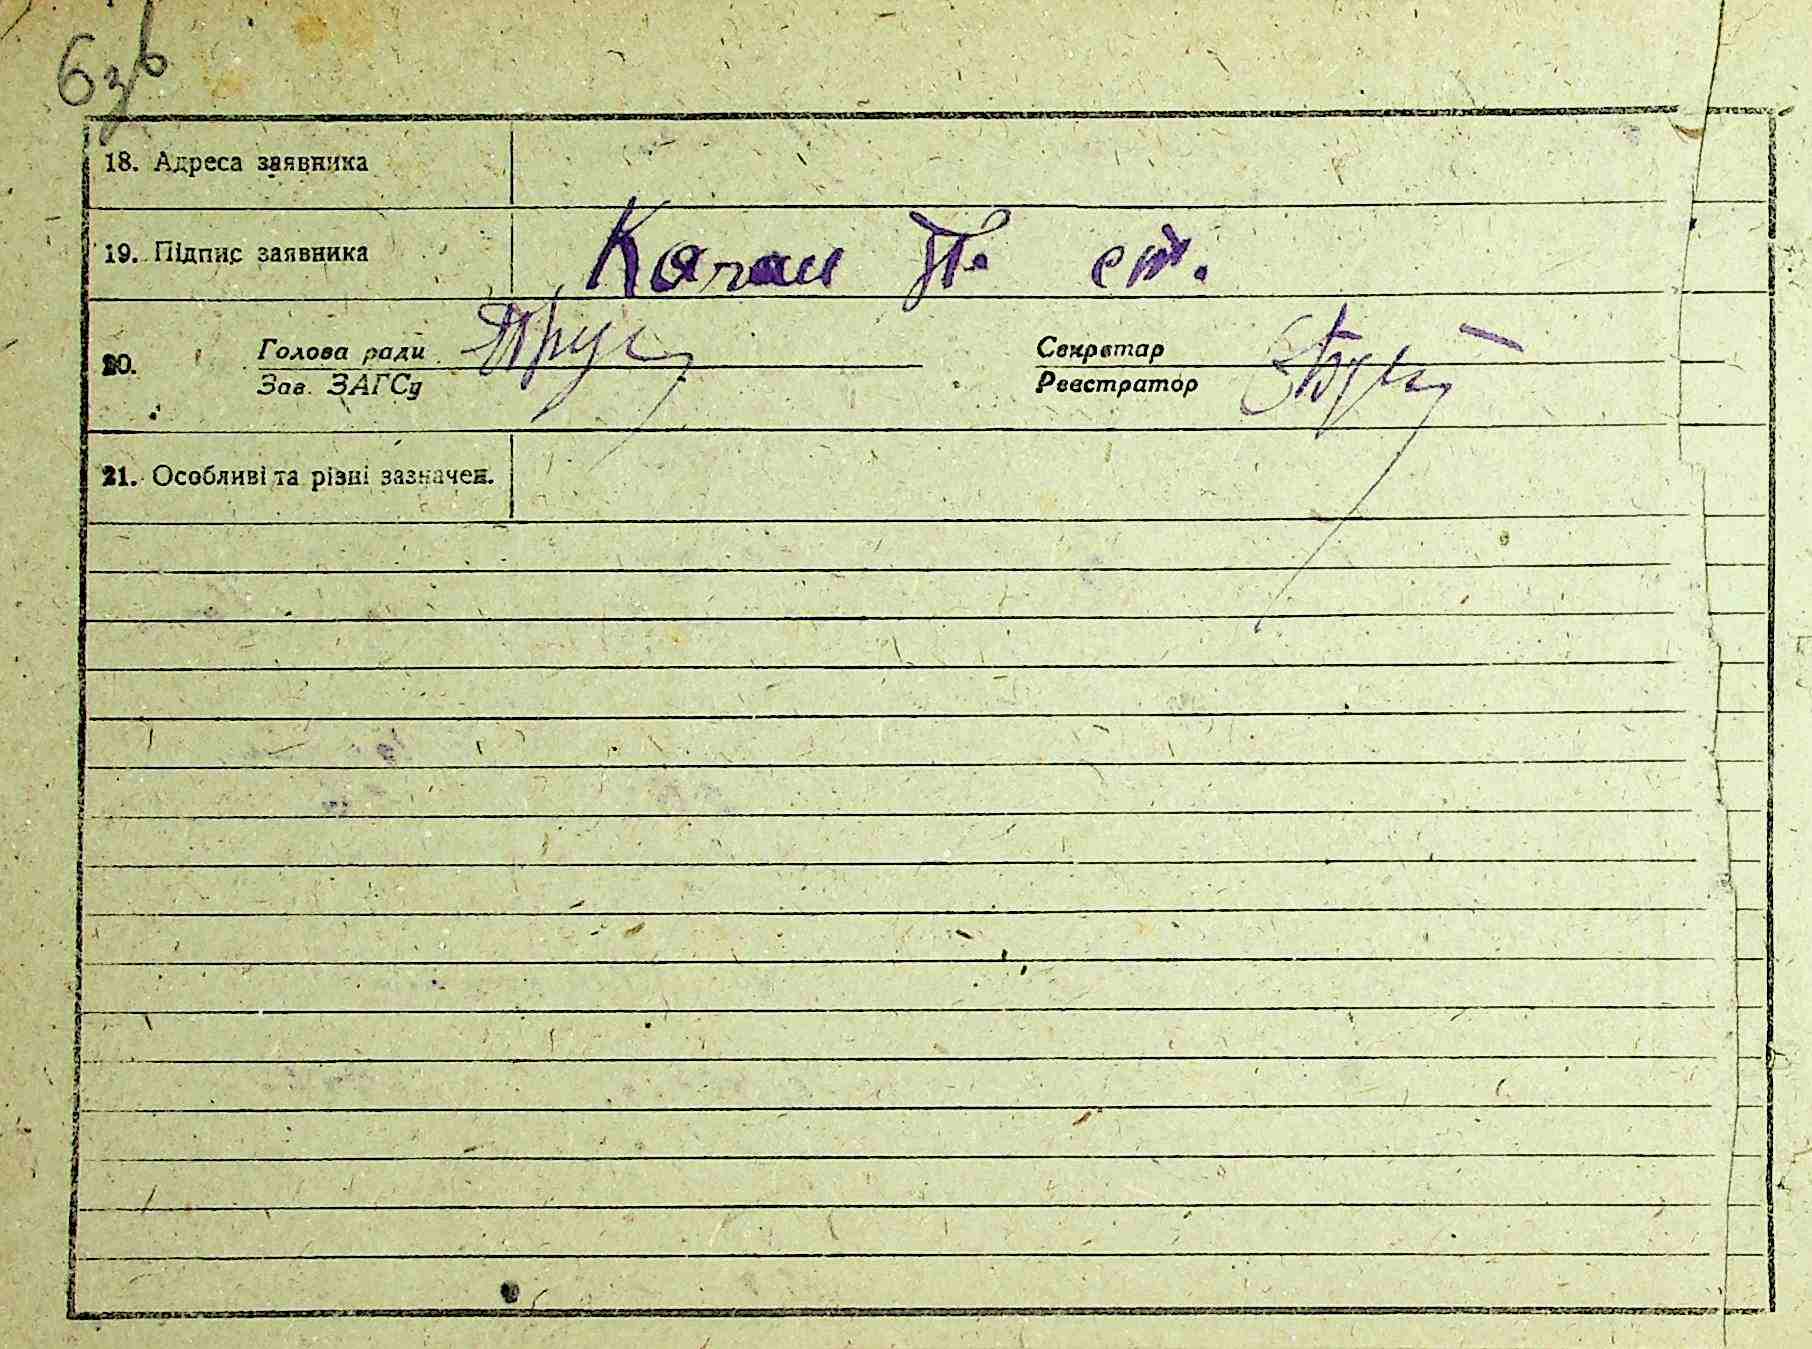 6зв
18. Адреса заявника
19. Підпис заявника Качан П. ст.
20. Голова ради Секретар
Зав. ЗАГСу Реєстратор
21. Особливі та різні зазначен.